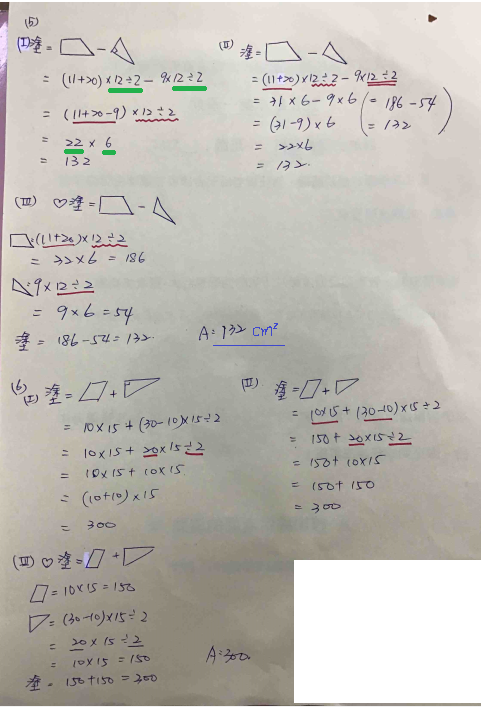 (5)
(I) 塗 = −
= (11+20)×12÷2 − 9×12÷2
= (11+20−9)×12÷2
= 22 × 6
= 132
(II) 塗 = −
= (11+20)×12÷2 − 9×12÷2
= 31×6 − 9×6
= (31−9)×6
= 22×6
= 132
(= 186−54
= 132)
(III) ♡ 塗 = −
: (11+20)×12÷2
= 32×6 = 186
: 9×12÷2
= 9×6 = 54
塗 = 186−54 = 132
A: 132 cm²
(6)
(I) 塗 = +
= 10×15 + (30−10)×15÷2
= 10×15 + 20×15÷2
= 10×15 + 10×15
= (10+10)×15
= 300
(II) 塗 = +
= 10×15 + (30−10)×15÷2
= 150 + 20×15÷2
= 150 + 10×15
= 150 + 150
= 300
(III) ♡ 塗 = +
= 10×15 = 150
= (30−10)×15÷2
= 20×15÷2
= 10×15 = 150
塗 = 150+150 = 300
A: 300